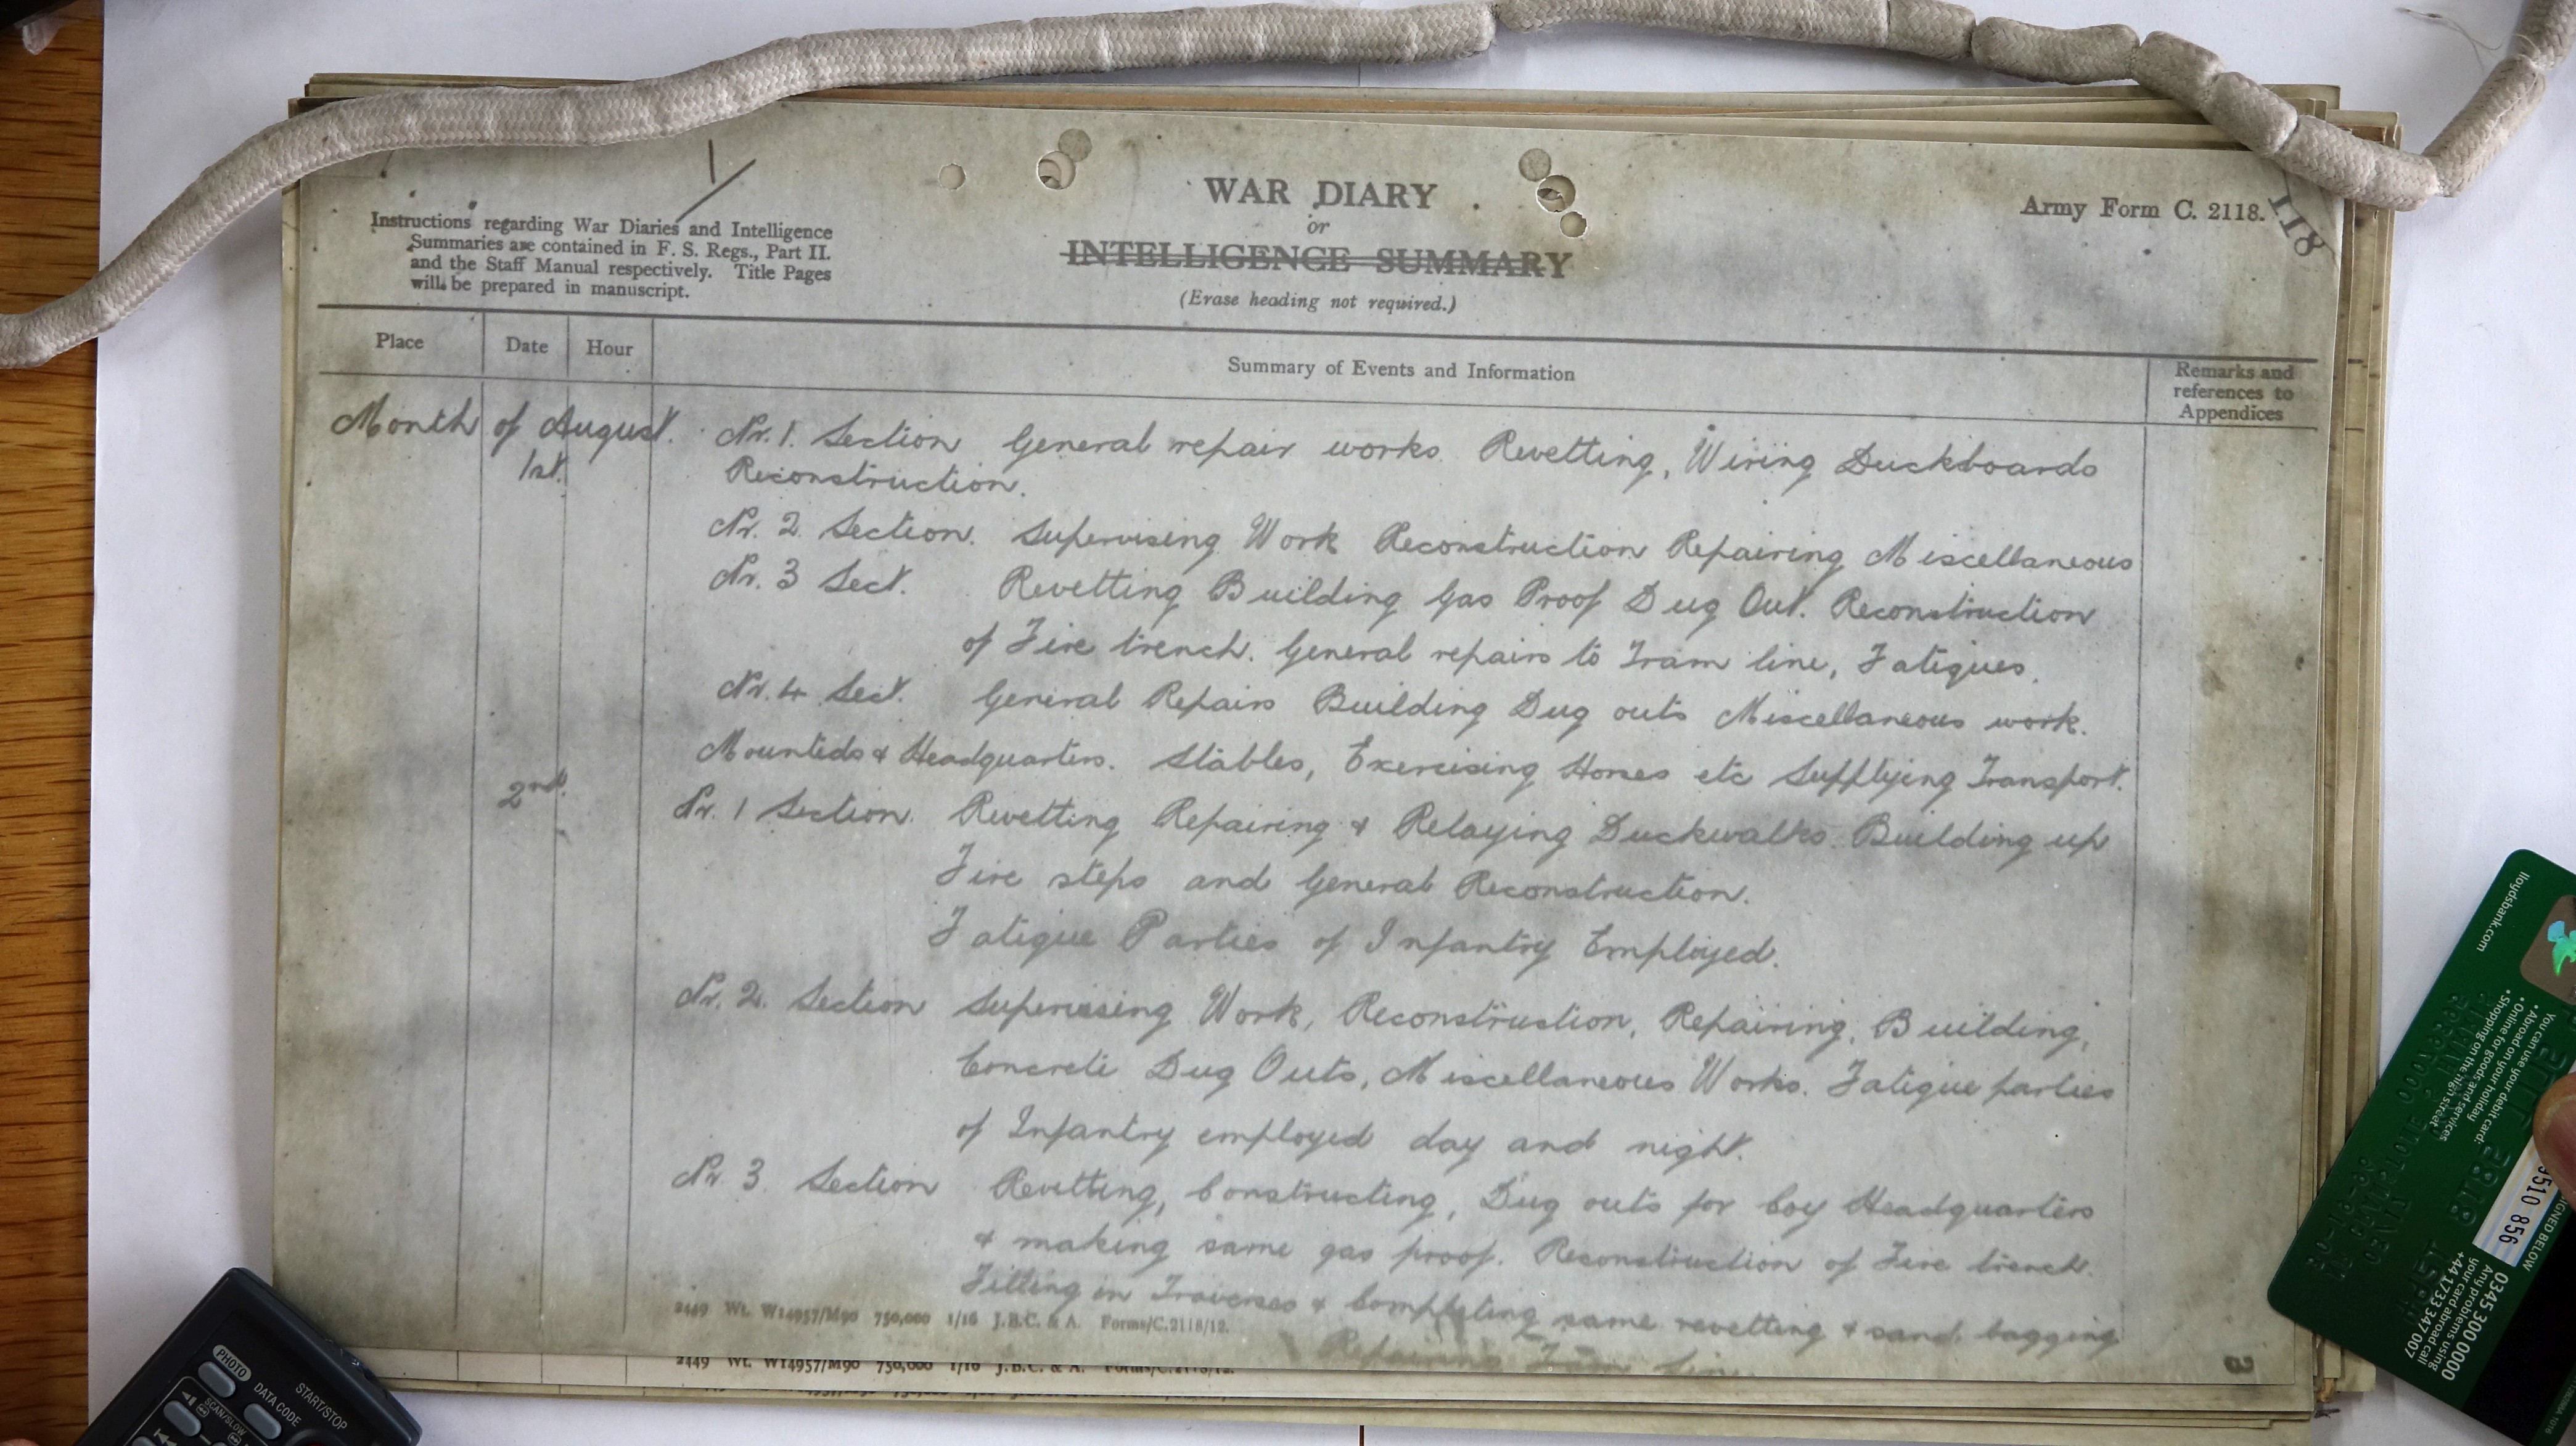 WAR DIARY
or
INTELLIGENCE SUMMARY
(Erase heading not required.)
Army Form C. 2118.
118
Instructions regarding War Diaries and Intelligence
Summaries are contained in F. S. Regs., Part II.
and the Staff Manual respectively. Title Pages
will be prepared in manuscript.
Place
Date
Hour
Summary of Events and Information
Remarks and
references to
Appendices
Month of August.
1st.
Nr. 1. Section General repair works Revetting, Wiring Duckboards
Reconstruction.
Nr. 2 Section. Supervising Work Reconstruction Repairing Miscellaneous
Nr. 3 Sect. Revetting Building Gas Proof Dug Out. Reconstruction
of Fire trench. General repairs to Tram line, Fatigues.
Nr. 4 Sect. General Repairs Building Dug outs Miscellaneous work.
Mounteds & Headquarters. Stables, Exercising Horses etc Supplying Transport.
2nd.
Nr. 1 Section. Revetting Repairing & Relaying Duckwalks. Building up
Fire steps and General Reconstruction.
Fatigue Parties of Infantry Employed.
Nr. 2. Section Supervising Work, Reconstruction, Repairing, Building,
Concrete Dug Outs, Miscellaneous Works. Fatigue parties
of Infantry employed day and night.
Nr 3. Section Revetting, Constructing, Dug outs for Coy Headquarters
& making same gas proof. Reconstruction of Fire trench.
Fitting in Traverses & Completing same revetting & sand bagging
Repairing Tram line
2449 Wt. W14957/M90 750,000 1/16 J.B.C. & A. Forms/C.2118/12.
2449 Wt. W14957/M90 750,000 1/16 J.B.C. & A. Forms/C.2118/12.
PHOTO
DATA CODE
START/STOP
SCAN/SLOW
lloydsbank.com
You can use your debit card:
• Abroad on your holiday
• Online for goods and services
• Shopping on the high street
0345 300 0000
Any problems using
your card abroad call
+44 1733 347 007